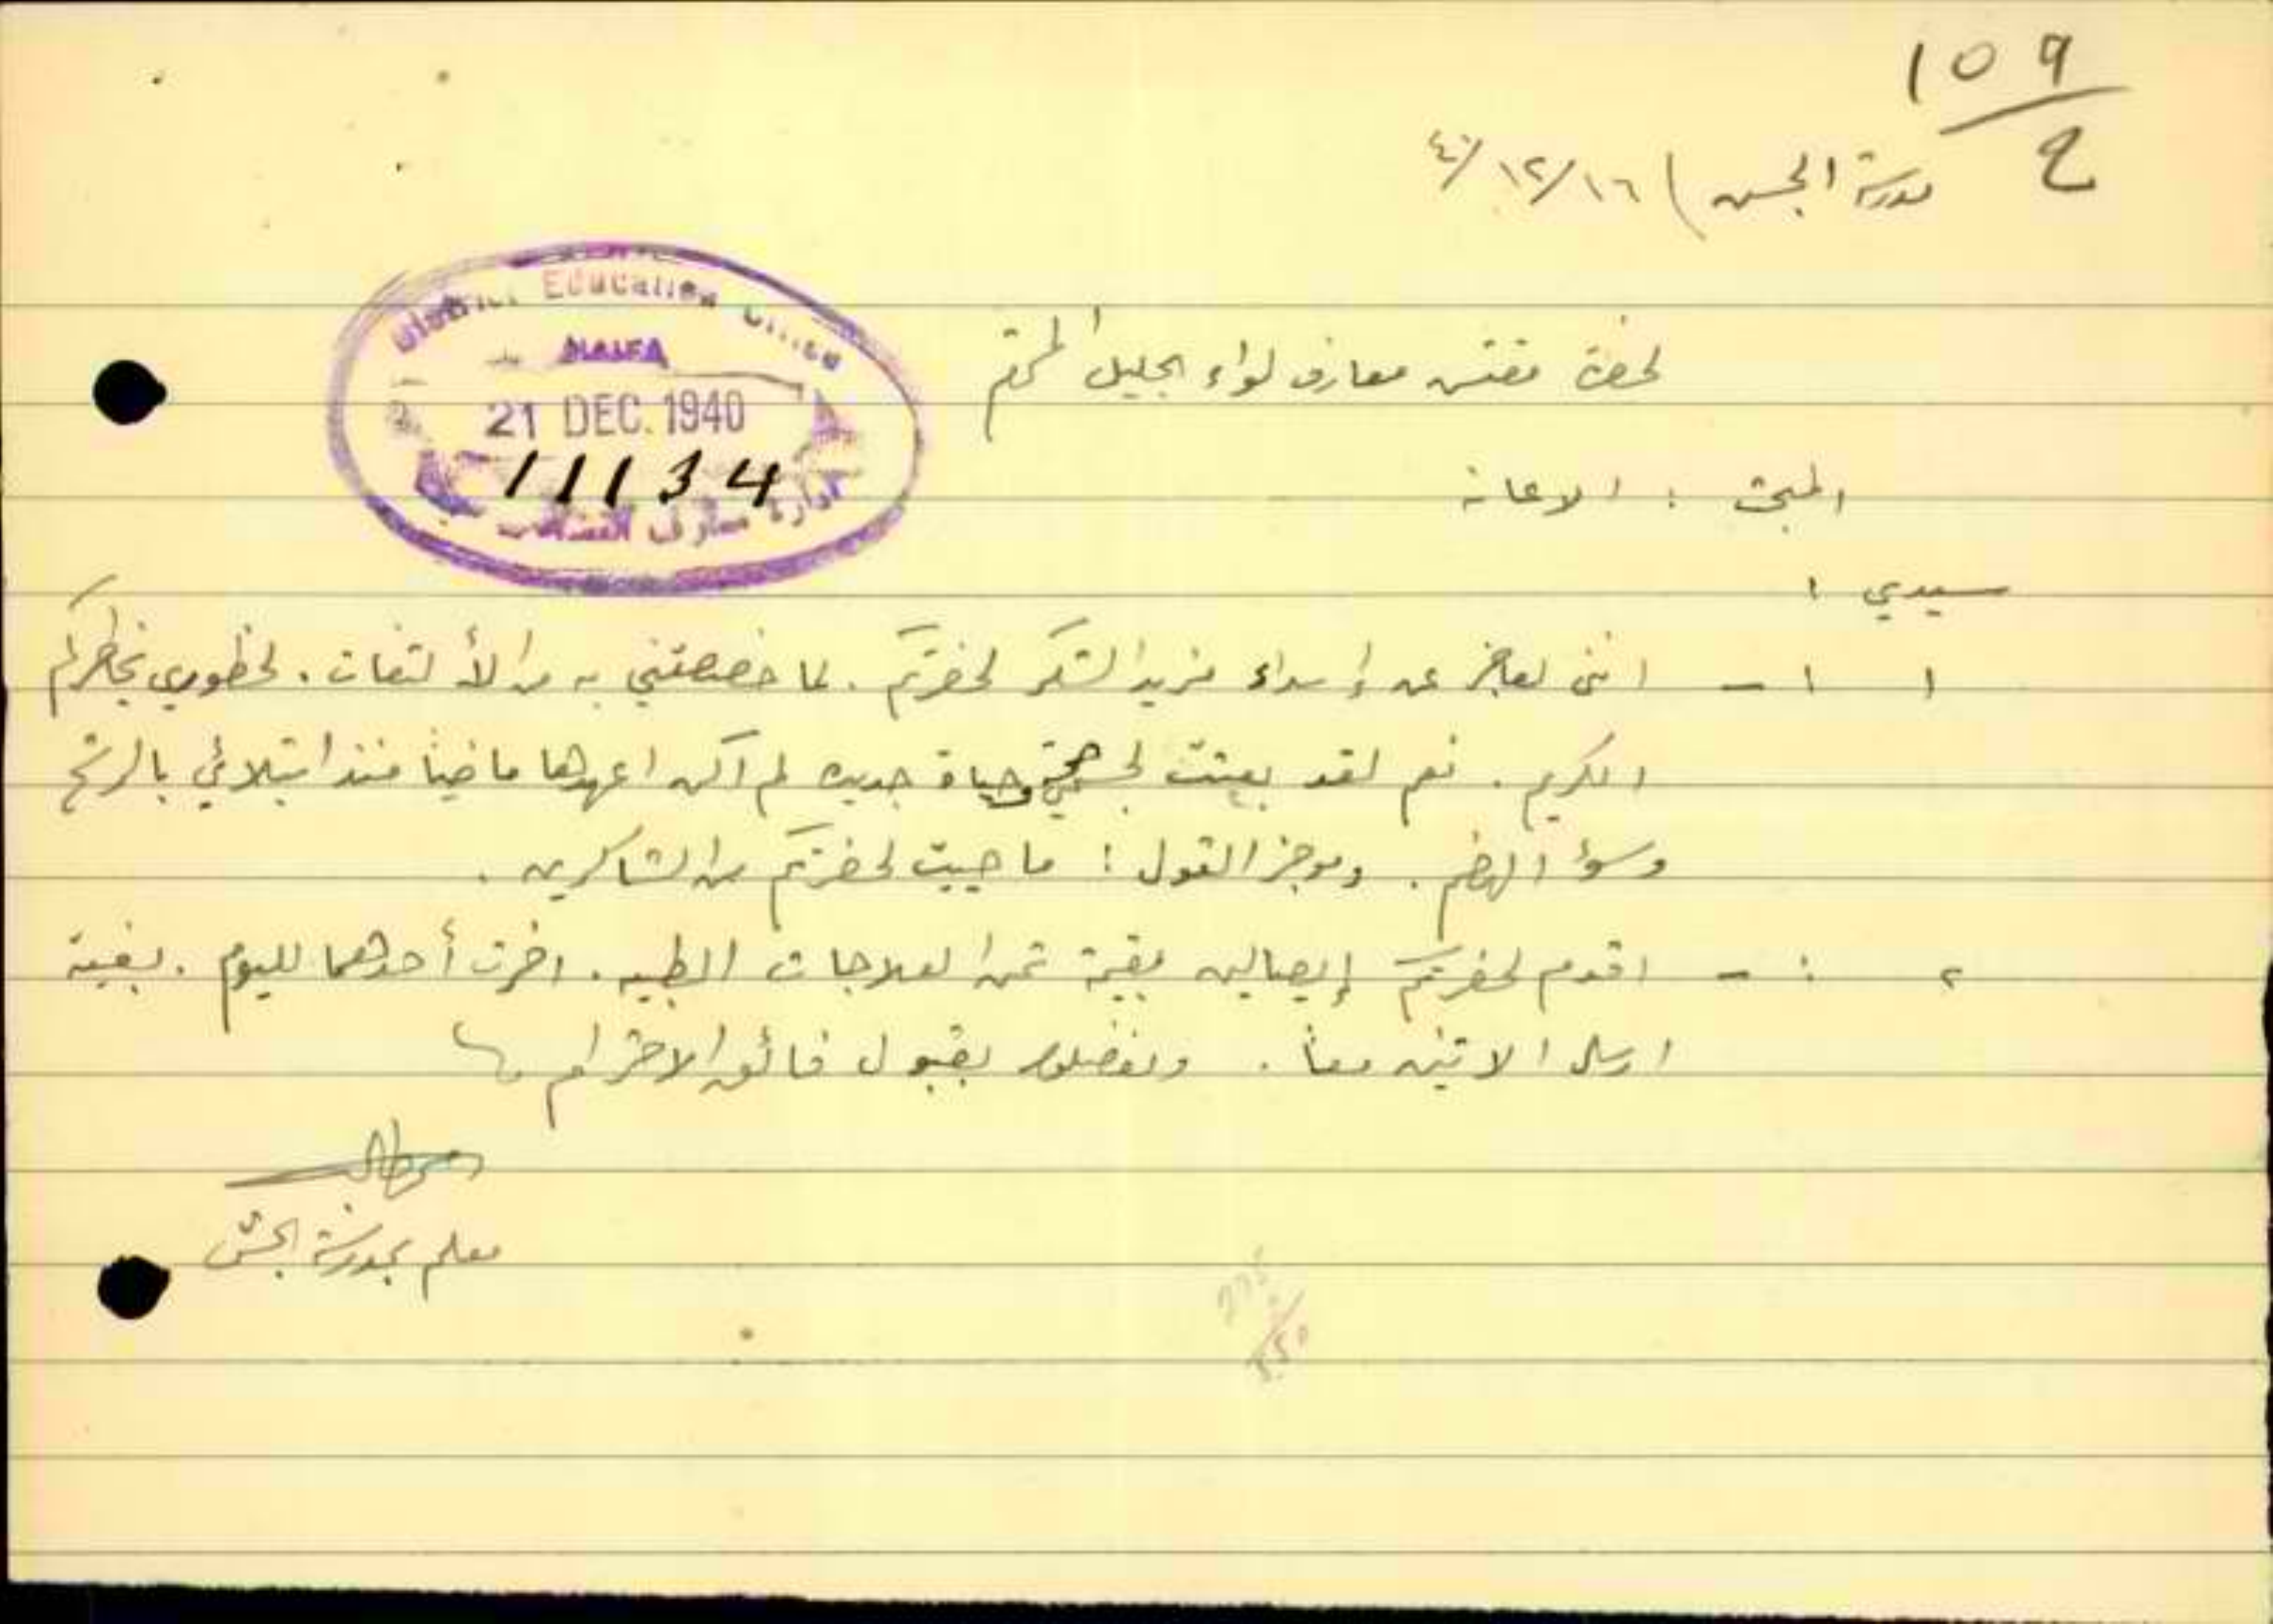 109
ع
مدرسة الجش ) ١٦/١٢/٤٠
District Education Office
HAIFA
21 DEC. 1940
11134
ادارة معارف
لحضرة مفتش معارف لواء الجليل المحترم
المبحث : الاعانة
سيدي !
١ - ١ انني لعاجز عن إسداء مزيد الشكر لحضرتكم . لما خصصتني به من الألتفات . لحظوري بخاطركم
الكريم . نعم لقد بعثت لجسمي حياة جديده لم أكن اعهدها ماضياً منذ ابتلائي بالرشح
وسؤ الهضم . وموجز القول : ما حييت لحضرتكم من الشاكرين .
٢ : - اقدم لحضرتكم إيصالين بقيمة ثمن العلاجات الطبيه . اخرت أحدهما لليوم . بغية
ارسل الاثنين معاً . وتفضلوا بقبول فائق الاحترام
معلم بمدرسة الجش